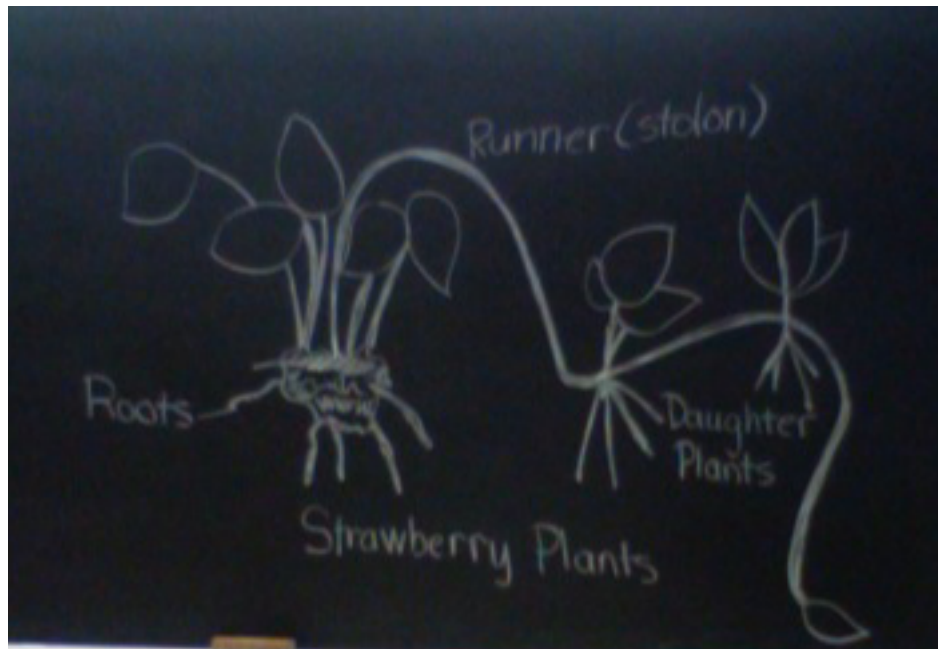 Runner (stolon)
Roots
Daughter
Plants
Strawberry Plants